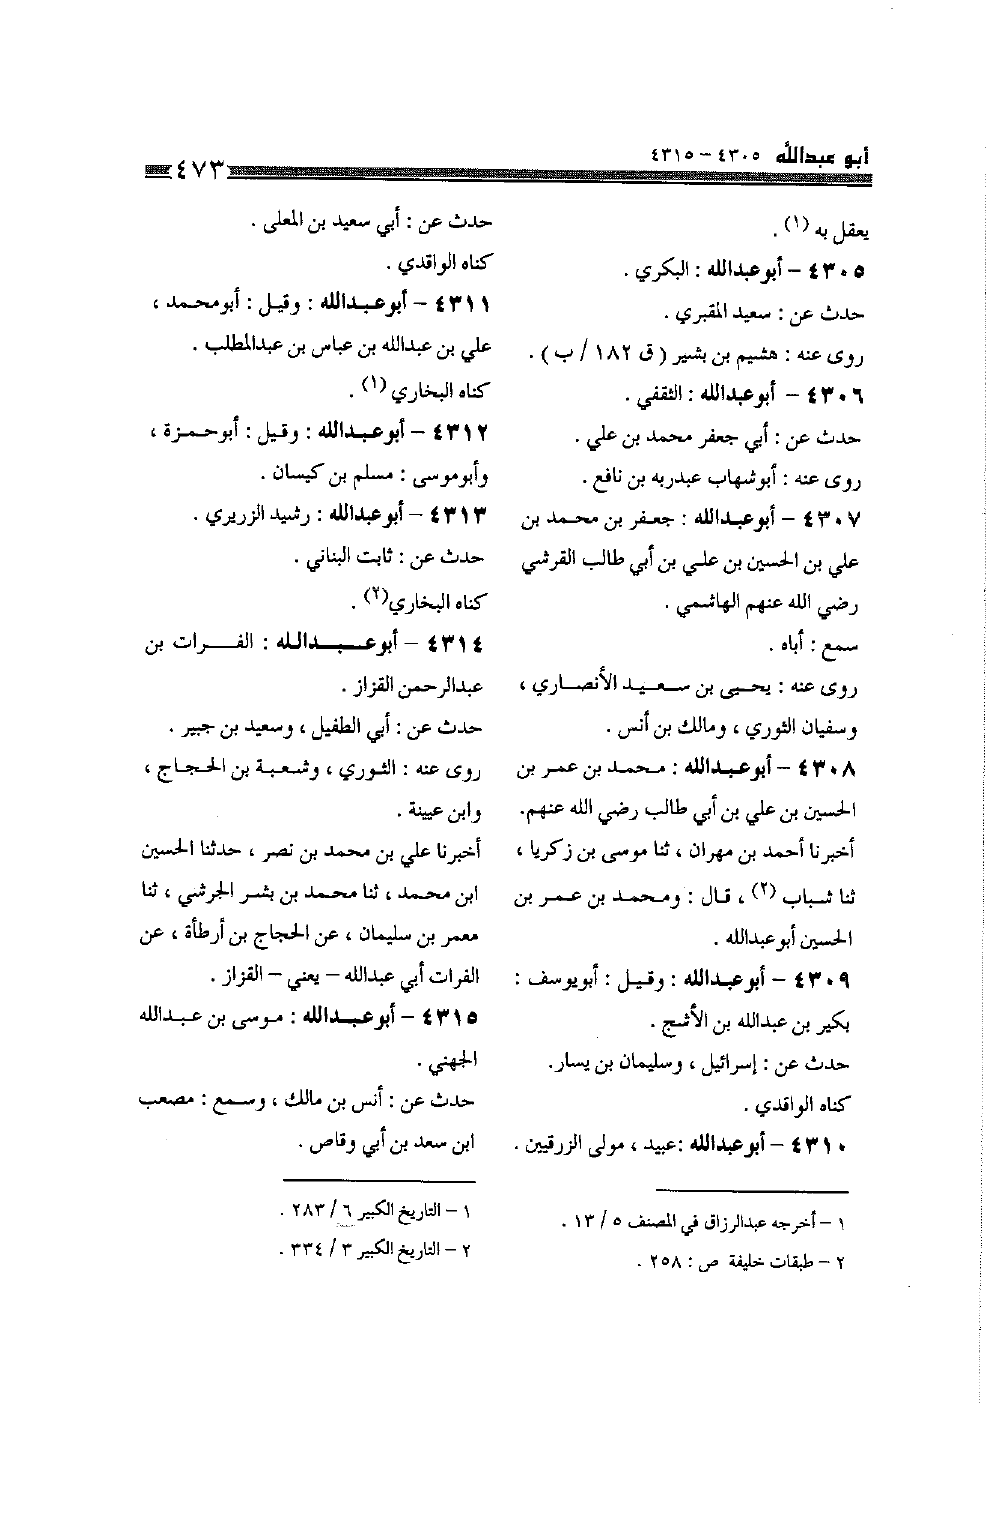 أبو عبدالله ٤٣٠٥ – ٤٣١٥
٤٧٣
يعقل به (١) .
٤٣٠٥ – أبوعبدالله : البكري .
حدث عن : سعيد المقبري .
روى عنه : هشيم بن بشير ( ق ١٨٢ / ب ) .
٤٣٠٦ – أبوعبدالله : الثقفي .
حدث عن : أبي جعفر محمد بن علي .
روى عنه : أبوشهاب عبدربه بن نافع .
٤٣٠٧ – أبوعبدالله : جعفر بن محمد بن
علي بن الحسين بن علي بن أبي طالب القرشي
رضي الله عنهم الهاشمي .
سمع : أباه .
روى عنه : يحيى بن سعيد الأنصاري ،
وسفيان الثوري ، ومالك بن أنس .
٤٣٠٨ – أبوعبدالله : محمد بن عمر بن
الحسين بن علي بن أبي طالب رضي الله عنهم.
أخبرنا أحمد بن مهران ، ثنا موسى بن زكريا ،
ثنا شباب (٢) ، قال : ومحمد بن عمر بن
الحسين أبوعبدالله .
٤٣٠٩ – أبوعبدالله : وقيل : أبويوسف :
بكير بن عبدالله بن الأشج .
حدث عن : إسرائيل ، وسليمان بن يسار.
كناه الواقدي .
٤٣١٠ – أبوعبدالله :عبيد ، مولى الزرقيين .
١ – أخرجه عبدالرزاق في المصنف ٥ / ١٣ .
٢ – طبقات خليفة ص : ٢٥٨ .
حدث عن : أبي سعيد بن المعلى .
كناه الواقدي .
٤٣١١ – أبوعبدالله : وقيل : أبومحمد ،
علي بن عبدالله بن عباس بن عبدالمطلب .
كناه البخاري (١) .
٤٣١٢ – أبوعبدالله : وقيل : أبوحمزة ،
وأبوموسى : مسلم بن كيسان .
٤٣١٣ – أبوعبدالله : رشيد الزريري .
حدث عن : ثابت البناني .
كناه البخاري(٢) .
٤٣١٤ – أبوعبدالله : الفرات بن
عبدالرحمن القزاز .
حدث عن : أبي الطفيل ، وسعيد بن جبير .
روى عنه : الثوري ، وشعبة بن الحجاج ،
وابن عيينة .
أخبرنا علي بن محمد بن نصر ، حدثنا الحسين
ابن محمد ، ثنا محمد بن بشر الجرشي ، ثنا
معمر بن سليمان ، عن الحجاج بن أرطأة ، عن
الفرات أبي عبدالله – يعني – القزاز .
٤٣١٥ – أبوعبدالله : موسى بن عبدالله
الجهني .
حدث عن : أنس بن مالك ، وسمع : مصعب
ابن سعد بن أبي وقاص .
١ – التاريخ الكبير ٦ / ٢٨٣ .
٢ – التاريخ الكبير ٣ / ٣٣٤ .